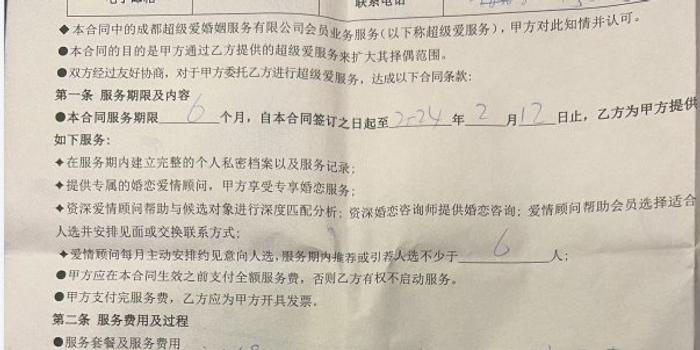 联系电话
◆本合同中的成都超级爱婚姻服务有限公司会员业务服务(以下称超级爱服务),甲方对此知情并认可。
●本合同的目的是甲方通过乙方提供的超级爱服务来扩大其择偶范围。
●双方经过友好协商,对于甲方委托乙方进行超级爱服务,达成以下合同条款:
第一条 服务期限及内容
●本合同服务期限 6 个月,自本合同签订之日起至 2024 年 2 月 12 日止,乙方为甲方提供
如下服务:
✦在服务期内建立完整的个人私密档案以及服务记录;
✦提供专属的婚恋爱情顾问,甲方享受专享婚恋服务;
✦资深爱情顾问帮助与候选对象进行深度匹配分析;资深婚恋咨询师提供婚恋咨询;爱情顾问帮助会员选择适合
人选并安排见面或交换联系方式;
✦爱情顾问每月主动安排约见意向人选,服务期内推荐或引荐人选不少于 6 人;
●甲方应在本合同生效之前支付全额服务费,否则乙方有权不启动服务。
●甲方支付完服务费,乙方应为甲方开具发票。
第二条 服务费用及过程
●服务套餐及服务费用